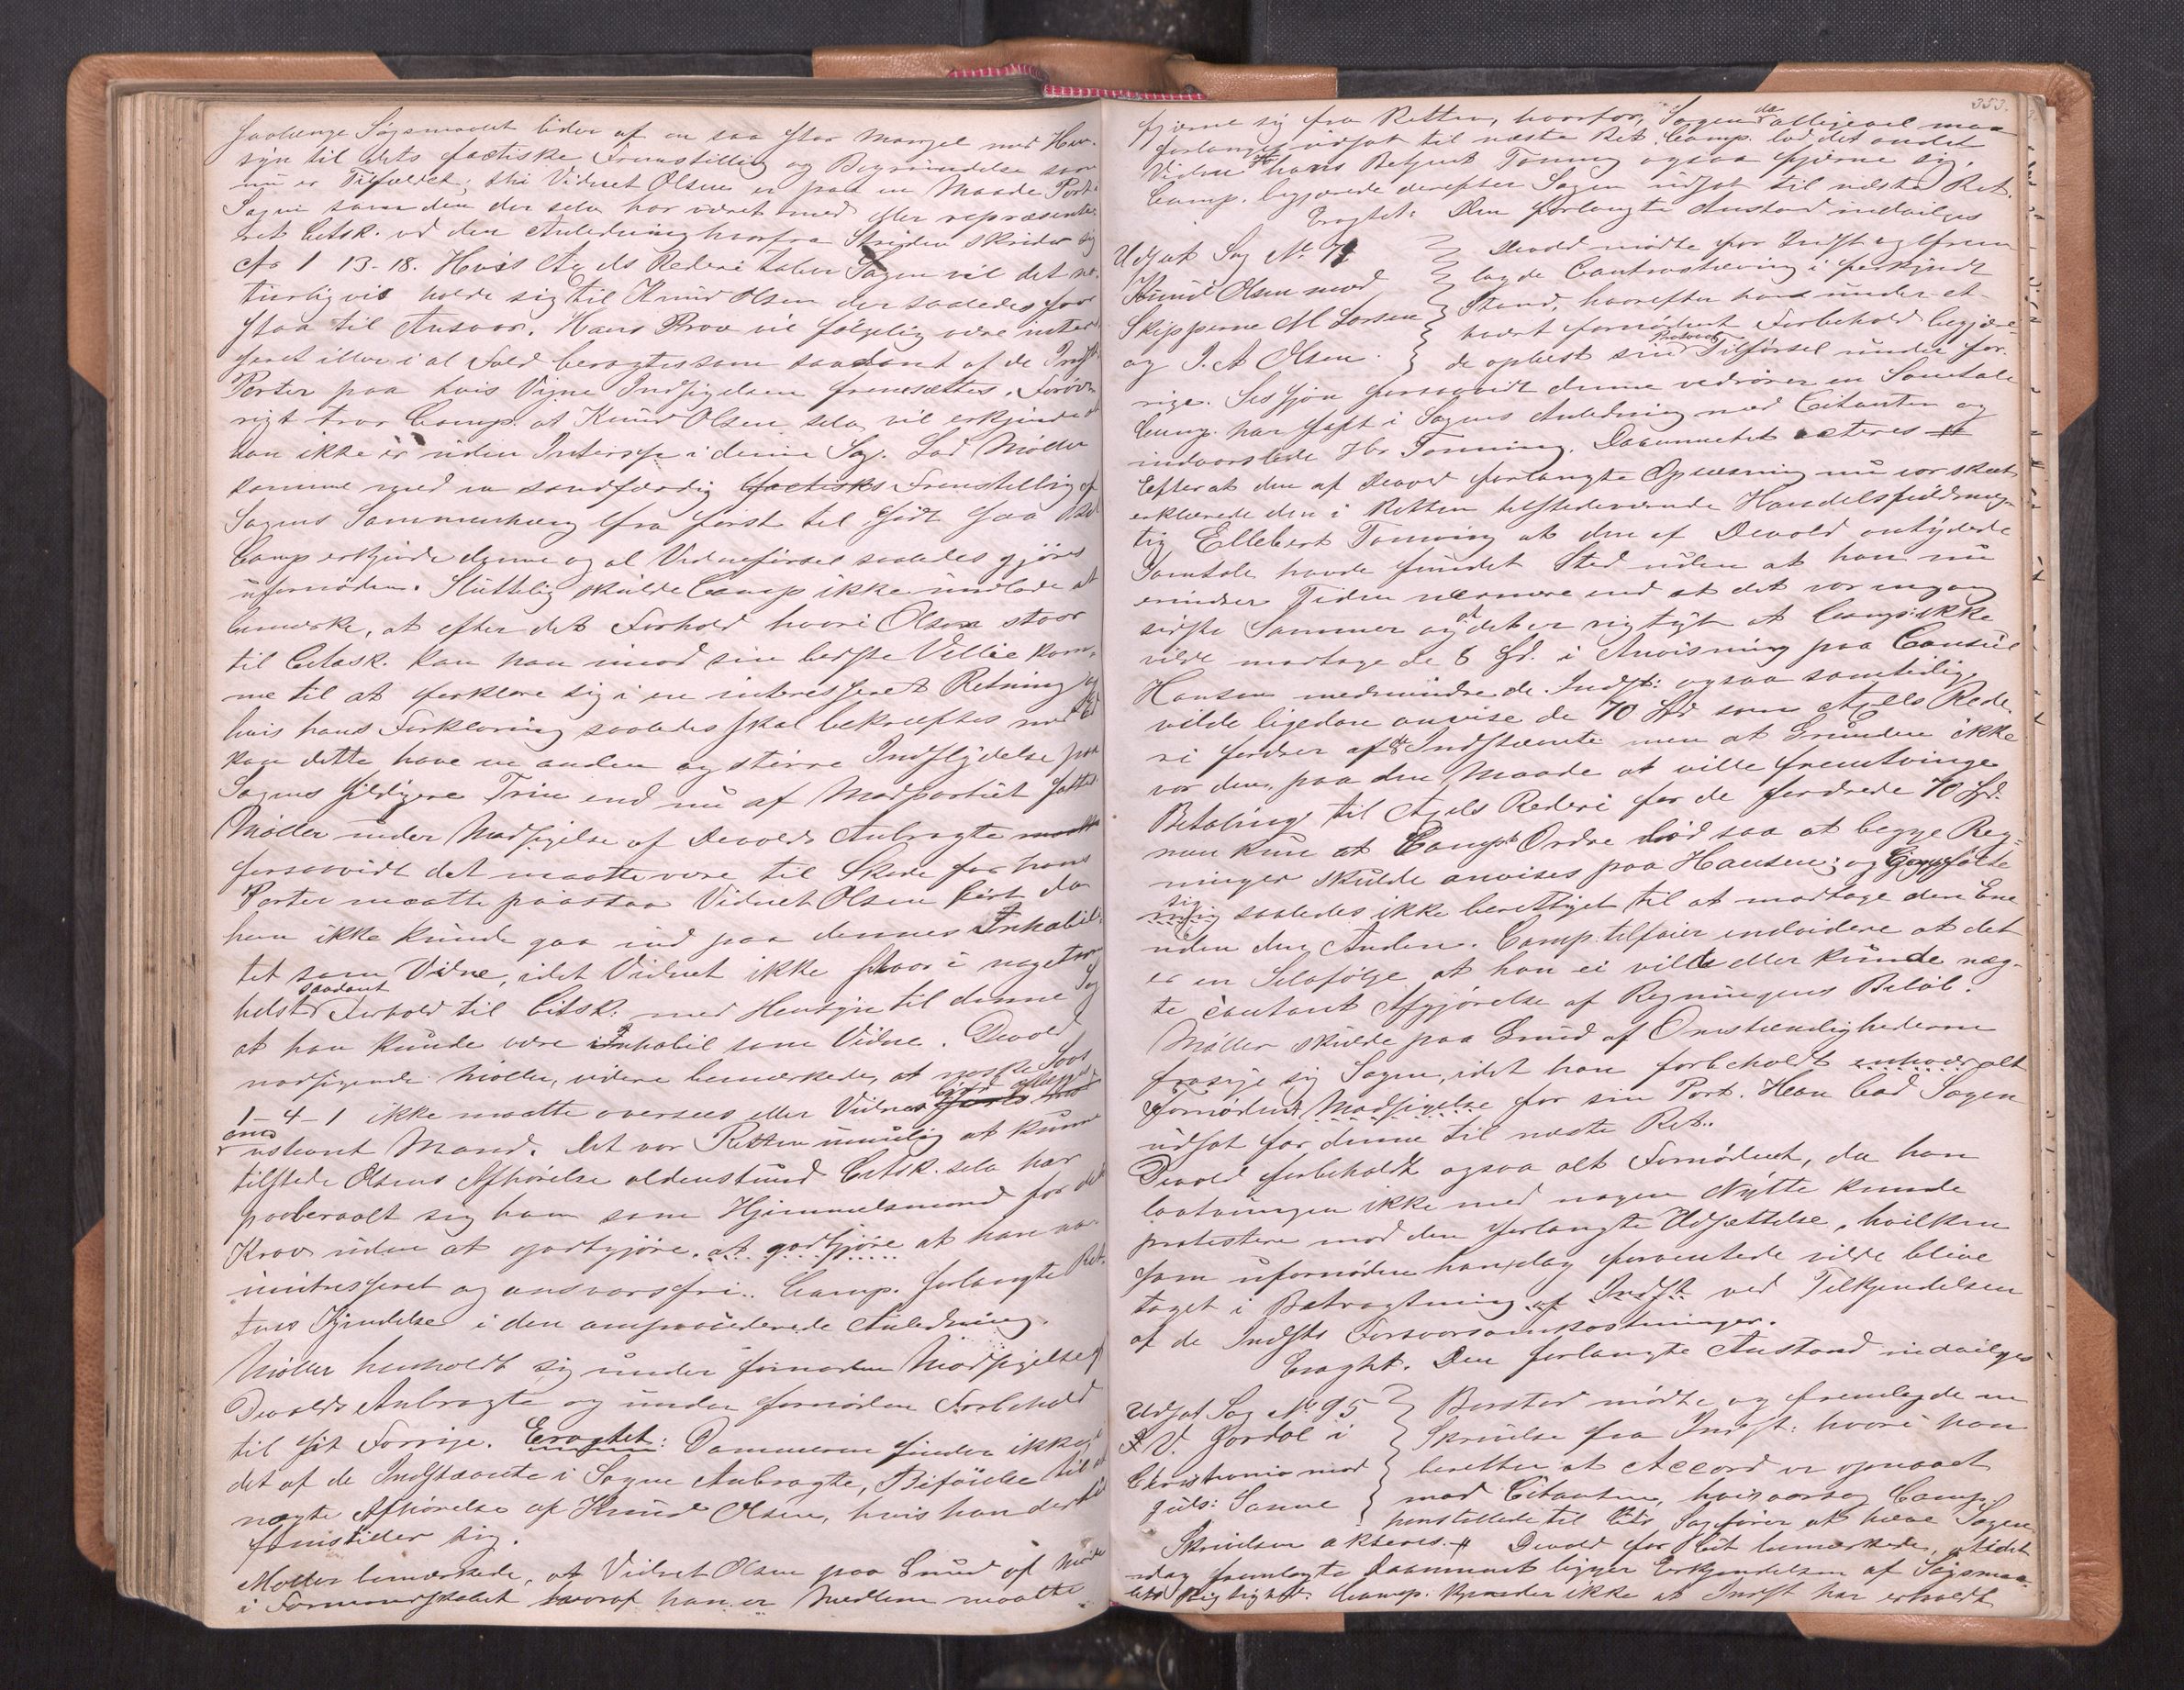 saalænge Søgsmaalet lider af en saa stor Mangel med Hen-
syn til dets factiske Fremstilling og Begrundelse som
nu er Tilfældet; thi Vidnet Olsen er paa en Maade Part i
Sagen som den der selv har været med eller repræsente-
ret Citsk. ved den Anledning hvorfra Striden skriver sig
cfr 1-13-18. Hvis Axels Rederi taber Sagen vil det na-
turligvis holde sig til Knud Olsen der saaledes faar
staa til Ansvar. Hans Prov vil følgelig være interes-
seret eller i al Fald beragtes som saadant af de Indst.
Parter paa hvis Vegne Indsigelsen fremsættes. Forøv-
rigt tror Comp. at Knud Olsen selv vil erkjende at
han ikke er uden Interesse i denne Sag. Lad Møller
komme med en sandfærdig factisk Fremstilling af
Sagens Sammenhæng fra først til sidst saa skal
Comp erkjende denne og al Vidneførsel saaledes gjøres
ufornøden. Sluttelig skulde Comp ikke undlade at
bemærke, at efter det Forhold hvori Olsen staar
til Citask. kan han imod sin bedste Villie kom-
me til at forklare sig i en interesseret Retning og
hvis hans Forklaring saaledes skal bekræftes med Ed
kan dette have en anden og større Indflydelse paa
Sagens sildigere Trin end nu af Modpartiet fattet
Møller under Modsigelse af Devolds Anbragte
forsaavidt det maatte være til Skade for hans
Parter maatte paastaa Vidnet Olsen ført da
han ikke kunde gaa ind paa dennes Inhabili-
tet som Vidne, idet Vidnet ikke staar i noget som
helst saadant Forhold til Citsk. med Hensyn til denne Sag
at han kunde være inhabil som Vidne. Devold
modsigende Møller, videre bemærkede, at norske Lovs
1-4-1 ikke maatte oversees eller Vidnes
uskant Mand. Det var Retten umulig at kunne
tilstede Olsens Afhørelse aldenstund Citsk. selv har
paaberaabt sig ham som Hjemmelsmand for det
Krav uden at godtgjøre, at godtgjøre at han va-
uintresseret og ansvarsfri. Comp. forlangte Ret-
tens Kjendelse i den ampruiederede Anledning.
Møller henholdt sig under fornøden Modsigelse af
Devolds Anbragte og under fornøden Forbehold
til sit Forrige. Eragtet: Dommeren finder ikke i
det af de Indstævnte i Sagen Anbragte, Beføielse til at
nægte Afhørelse af Knud Olsen, hvis han dertil
fremstiller sig.
Møller bemærkede, at Vidnet Olsen paa Grund af Møde
i Formandskabet hvoraf han er Medlem maatte
353.
fjerne sig fra Retten, hvorfor Sagen da alligevel maa
forlanges udsat til næste Ret. Comp. lod det andet
Vidne hans Betjent Tonning ogsaa fjerne sig.
Comp. begjærede derefter Sagen udsat til næste Ret.
Eragtet: Den forlangte Anstand indvilges
Udsat Sag No 71
Knud Olsen mod
Skipperne M Larsen
og J. A Olsen.
Devold mødte for Indst og frem
lagde Contrastævning i forkyndt
Stand, hvorefter han under et-
hvert fornødent Forbehold begjære-
de oplæst sin Protocol Tilførsel under for-
rige. Session forsaavidt denne vedrører en Samtale
Comp. har haft i Sagens Anledning med Citanten og
indvarslede Hr Tonning. Documentet acteres #
Efterat den af Devold forlangte Oplæsning nu var skeet
erklærede den i Retten tilstedeværende Handelsfuldmæg-
tig Ellebert Tonning at den af Devold antydede
Samtale havde fundet Sted uden at han nu
erindrer Tiden nærmere end at det var engang
sidste Sommer og at det er rigtigt at Comp: ikke
vilde modtage de 8 Spd. i Anvisning paa Consul
Hansen medmindre de Indst: ogsaa samtidig
vilde ligedan anvise de 70 Spd som Axels Rede-
ri fordrer af de Indstævnte men at Grunden ikke
var den, paa den Maade at ville fremtvinge
Betaling til Axels Rederi for de fordrede 70 Spd.
men kun at Comps Ordre lød saa at begge Reg-
ninger skulde anvises paa Hansen; og Comp følte
sig saaledes ikke berettiget til at modtage den Ene
uden den Anden. Comp. tilføier endvidere at det
er en Selvfølge at han ei vilde eller kunde næg-
te contant Afgjørelse af Regningens Beløb.
Møller skulde paa Grund af Omstændighederne
frasige sig Sagen, idet han forbeholdt enhver alt
Fornødent Modsigelse for sin Part. Han bad Sagen
udsat for denne til næste Ret.
Devold forbeholdt ogsaa alt Fornødent, da han
lovtvungen ikke med nogen Nytte kunde
protestere mod den forlangte Udsættelse, hvilken
som ufornøden han dog forventede vilde blive
taget i Betragtning af Indst ved Tilkjendelsen
af de Indsts Forsvarsomkostninger.
Eragtet. Den forlangte Anstand indvilges
Udsat Sag No 95
J. V. Jordal i
Christiania mod
Juls: Sanne
Barstad mødte og fremlagde en
Skrivelse fra Indst: hvori han
beretter at Accord er opnaaet
med Citanten, hvisaarsag Comp
henstillede til Cits Sagfører at hæve Sagen
Skrivelsen akteres. # Devold for Cit bemærkede, at i det
idag fremlagte Document ligger Erkjendelsen af Søgsmaa-
lets Rigtighed. Comp. kjender ikke at Indst har erholdt